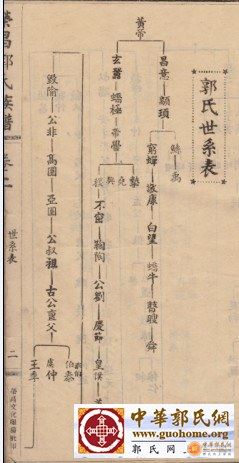 郭氏世系表
黃帝
昌意 顓頊
鯀 禹
窮蟬 敬康 望 蟜牛 瞽瞍 舜
玄囂 蟜極 帝嚳
摯
堯
不窋 鞠陶 公劉 慶節 皇僕
毀隃 公非 高圉 亞圉 公叔祖 古公亶父
虞仲
王季
榮昌郭氏族譜 卷一
世系表
二
中華郭氏網
www.guohome.org
郭氏网